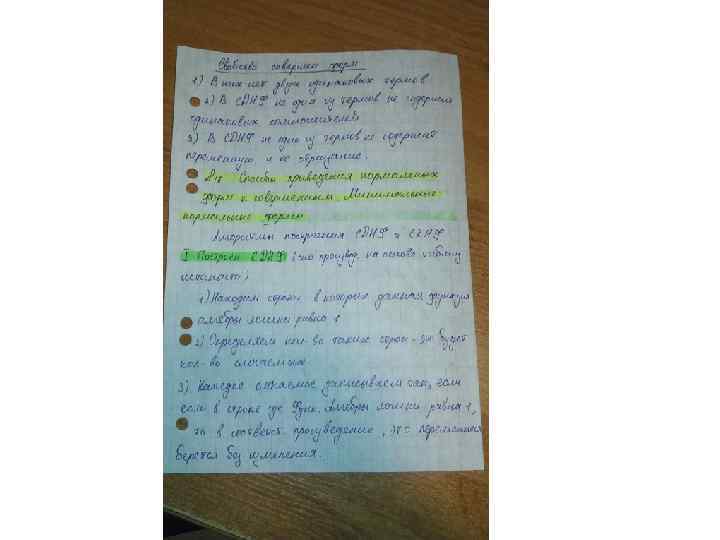 Свойства совершен форм
1) В них нет двух одинаковых термов
2) В СДНФ не один из термов не содержит
одинаковых сомножителей
3) В СДНФ не один из термов не содержит
переменную и ее отрицание.
Способы приведения нормальных
форм к совершенным. Минимальные
нормальные формы
Алгоритмы построения СДНФ и СКНФ
I Построен СДНФ (по производ. на основе таблицы
истинност)
1) Находим строки в которых данная функция
алгебры логики равна 1
2) Определяем кол-во таких строк - это будет
кол-во слагаемых
3) Каждое слагаемое записываем так, если
если в строке где Фун. алгебры логики равна 1,
то в соответст. произведение, эта переменная
берется без изменения.